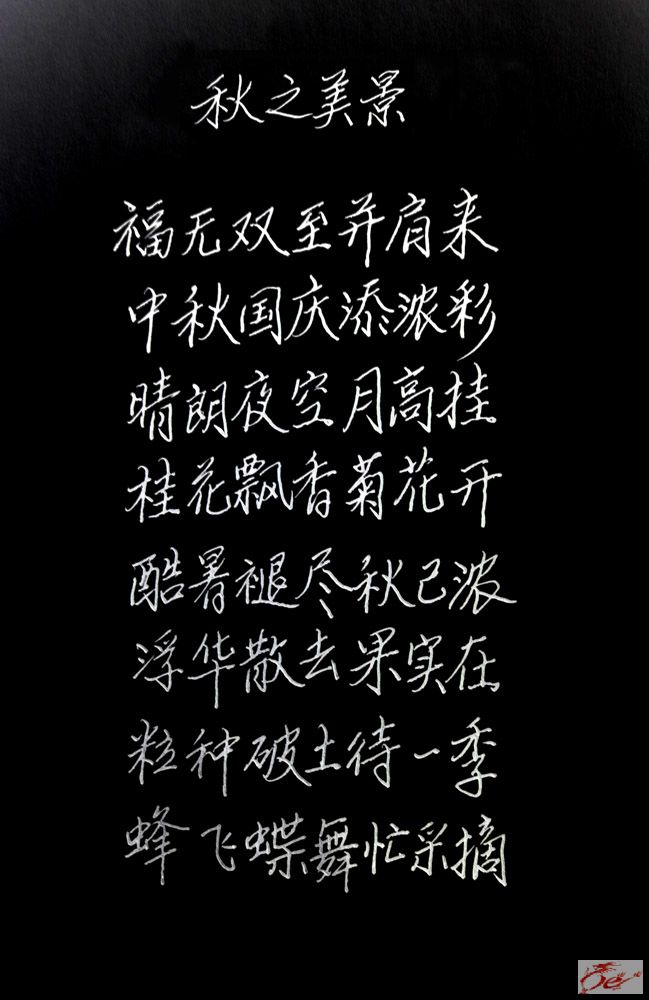 秋之美景
福无双至并肩来
中秋国庆添浓彩
晴朗夜空月高挂
桂花飘香菊花开
酷暑褪尽秋已浓
浮华散去果实在
粒种破土待一季
蜂飞蝶舞忙采摘